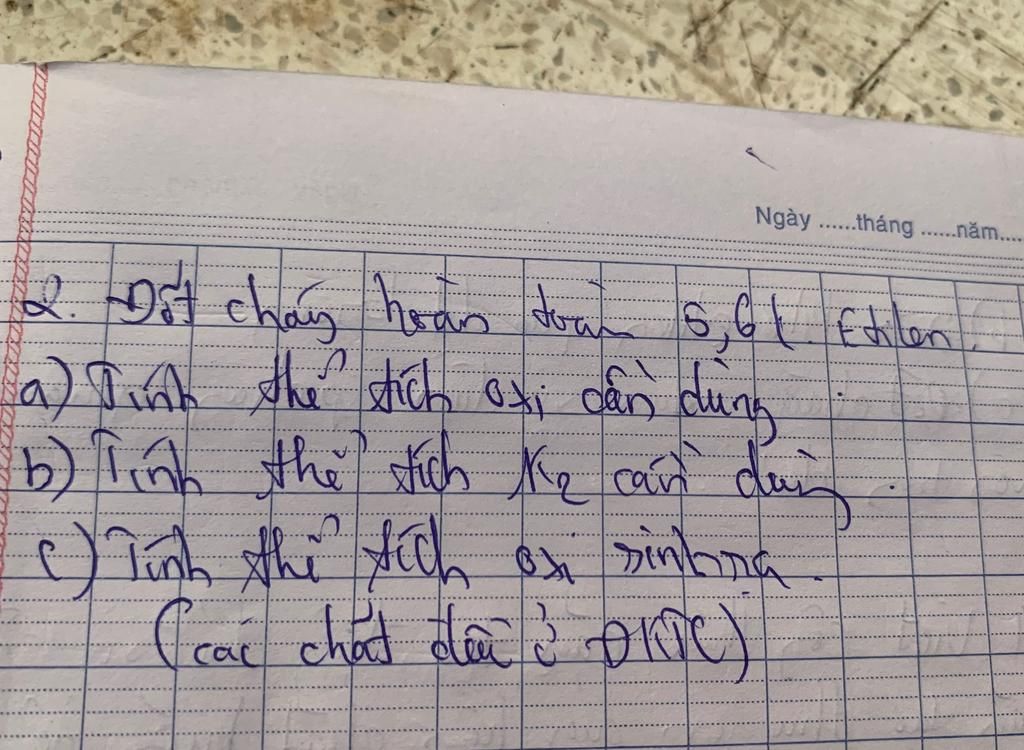 Ngày ......tháng ......năm....
2. Đốt cháy hoàn toàn 5,6 l Etilen.
a) Tính thể tích oxi cần dùng.
b) Tính thể tích KK cần dùng.
c) Tính thể tích oxi sinh ra.
(các chất đều ở ĐKTC)